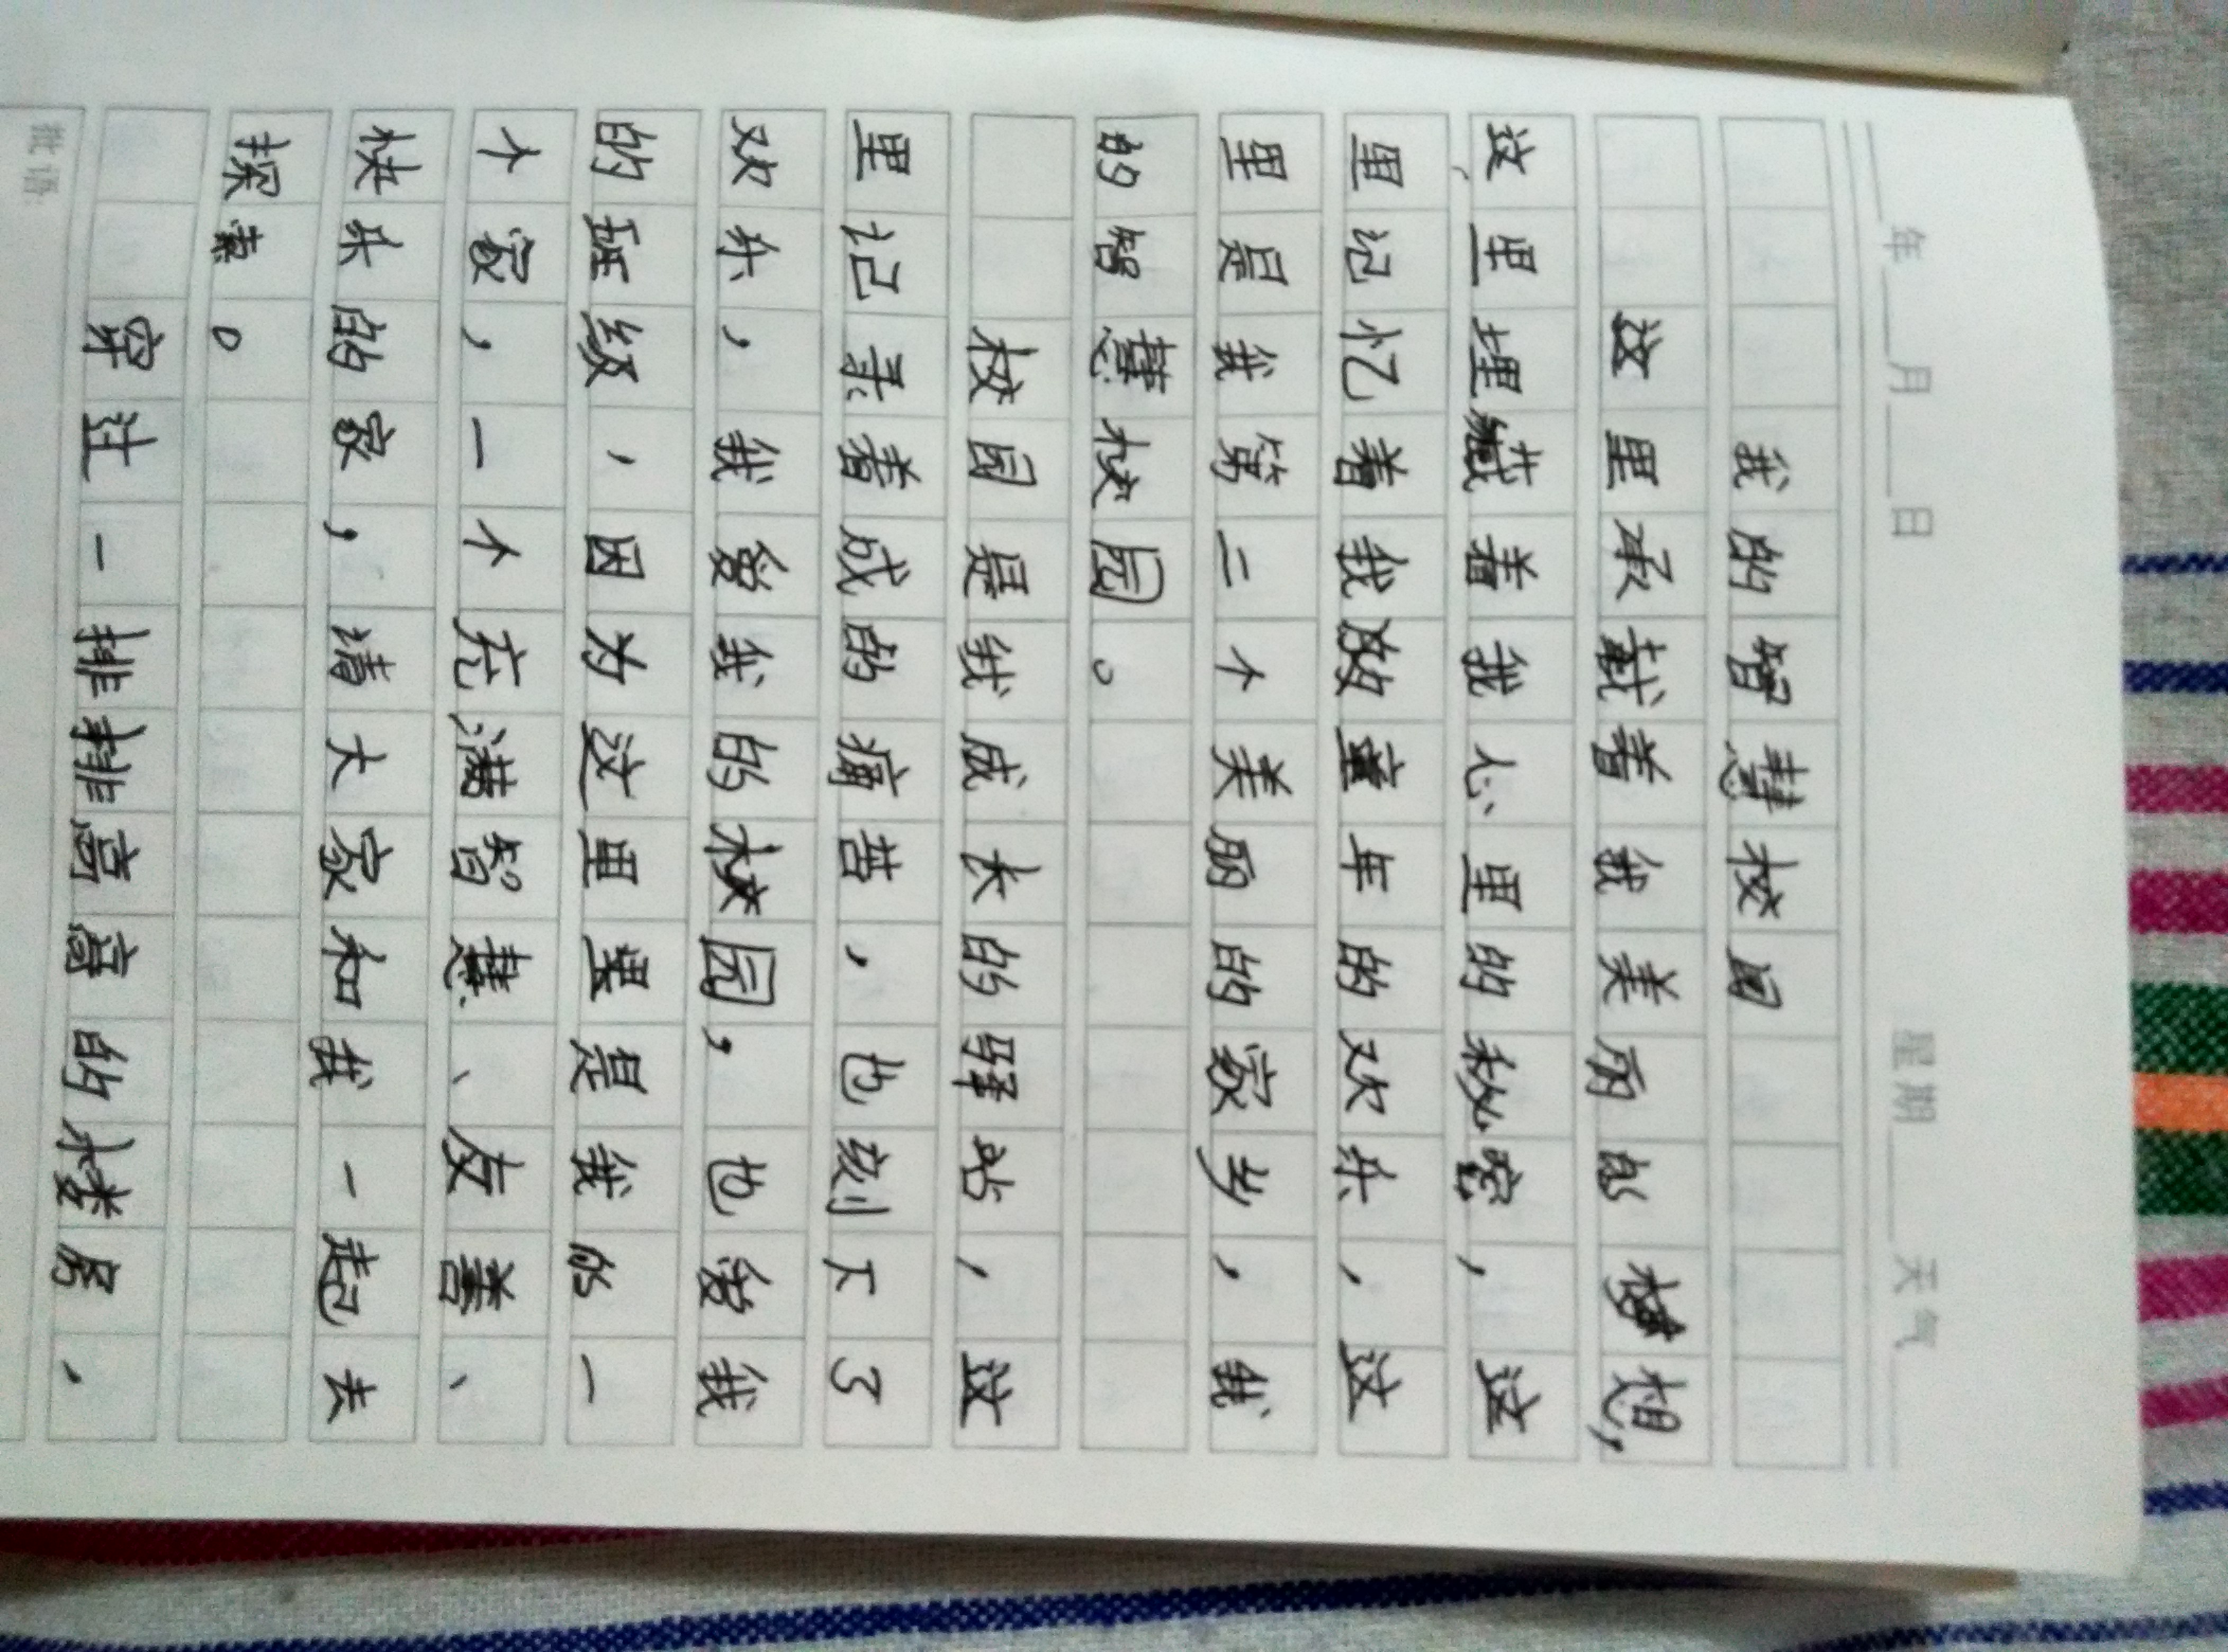 年 月 日 星期 天气
我的智慧校园
这里承载着我美丽的梦想,
这里埋藏着我心里的秘密，这
里记忆着我放童年的欢乐，这
里是我第二个美丽的家乡，我
的智慧校园。
校园是我成长的驿站，这
里记录着成的痛苦，也刻下了
欢乐，我爱我的校园，也爱我
的班级，因为这里里是我的一
个家，一个充满智慧、友善、
快乐的家，请大家和我一起去
探索。
穿过一排排高高的楼房，
批语